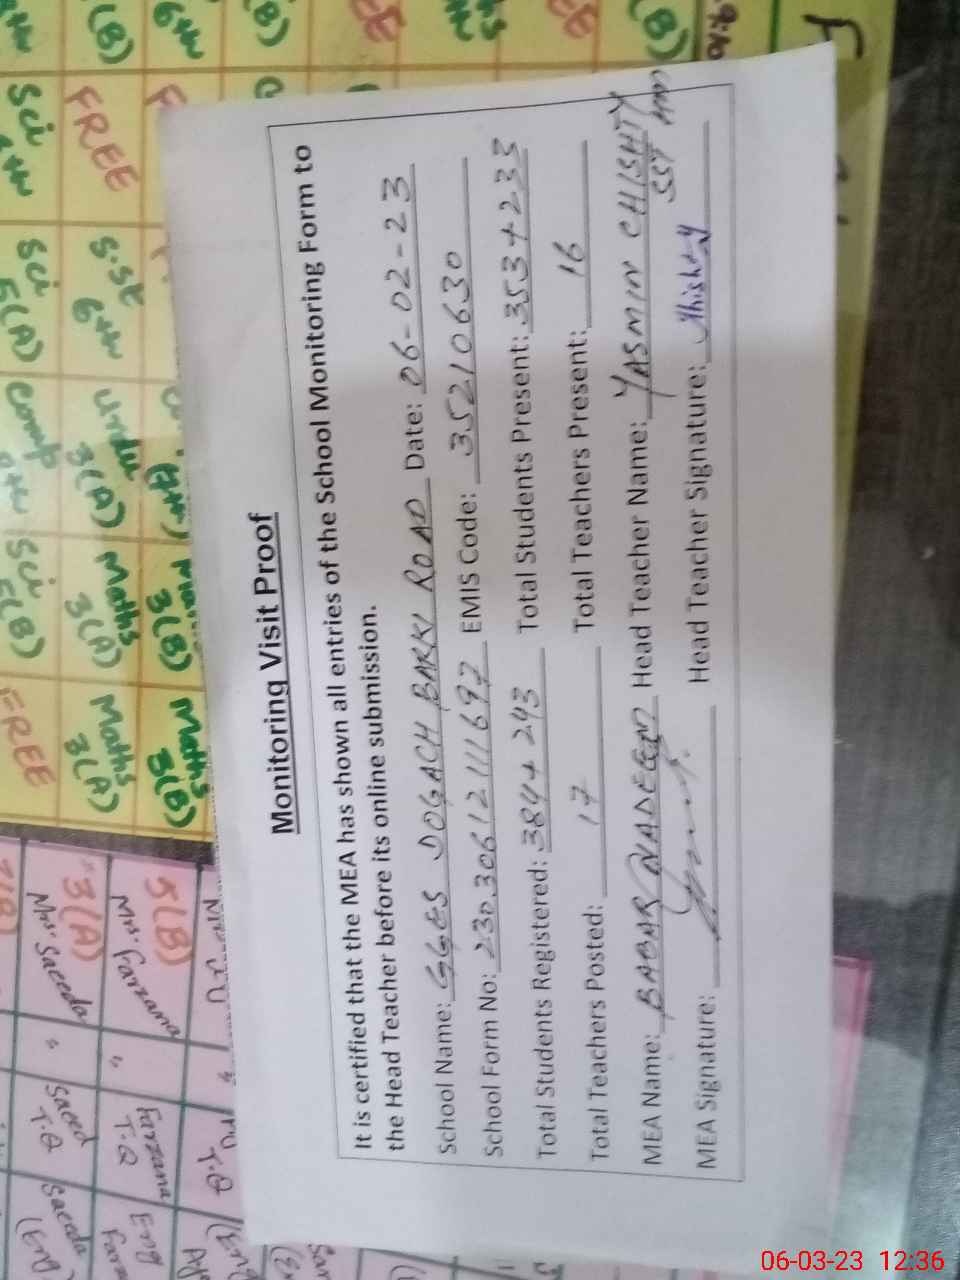 Monitoring Visit Proof
It is certified that the MEA has shown all entries of the School Monitoring Form to
the Head Teacher before its online submission.
School Name: GGES DOGACH BARKI ROAD Date: 06-02-23
School Form No: 230306121111697 EMIS Code: 35210630
Total Students Registered: 384+243 Total Students Present: 353+233
Total Teachers Posted: 17 Total Teachers Present: 16
MEA Name: BABAR NADEEM Head Teacher Name: YASMIN CHISHTY
SST
MEA Signature: Head Teacher Signature: Chishty
6th
(B)
6th
(B)
FREE
Sci
6th
FREE
Sci
5(A)
S.St
6th
Comp
Urdu
3(A)
Sci
5(B)
Maths
3(A)
3(B)
FREE
Maths
3(A)
Maths
3(B)
3(A)
Mrs. Saeeda
5(B)
Mrs. Farzana
Saeed
T.Q
Farzana
T.Q
T.Q
Saeeda
(Eng)
Eng
06-03-23 12:36